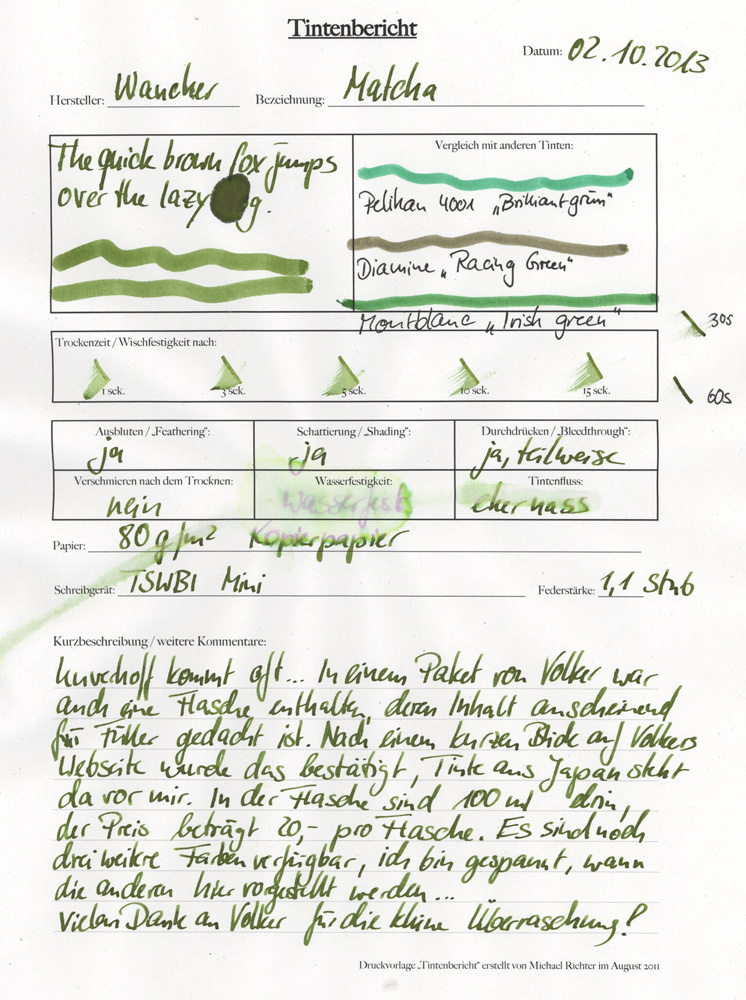 Tintenbericht
Datum: 02.10.2013
Hersteller: Wancher Bezeichnung: Matcha
The quick brown fox jumps
over the lazy g.
Vergleich mit anderen Tinten:
Pelikan 4001 „Brilliantgrün"
Diamine „Racing Green"
Montblanc „Irish green"
Trockenzeit / Wischfestigkeit nach:
1 sek. 3 sek. 5 sek. 10 sek. 15 sek.
30s
60s
Ausbluten / „Feathering": Schattierung / „Shading": Durchdrücken / „Bleedthrough":
ja ja ja, teilweise
Verschmieren nach dem Trocknen: Wasserfestigkeit: Tintenfluss:
nein Wasserfest eher nass
Papier: 80 g/m² Kopierpapier
Schreibgerät: TSWBI Mini Federstärke: 1,1 Stub
Kurzbeschreibung / weitere Kommentare:
Unverhofft kommt oft... In einem Paket von Volker war
auch eine Flasche enthalten, deren Inhalt anscheinend
für Füller gedacht ist. Nach einem kurzen Blick auf Volkers
Webseite wurde das bestätigt, Tinte aus Japan steht
da vor mir. In der Flasche sind 100 ml drin,
der Preis beträgt 20,- pro Flasche. Es sind noch
drei weitere Farben verfügbar, ich bin gespannt, wann
die anderen hier vorgestellt werden...
Vielen Dank an Volker für die kleine Überraschung!
Druckvorlage „Tintenbericht" erstellt von Michael Richter im August 2011